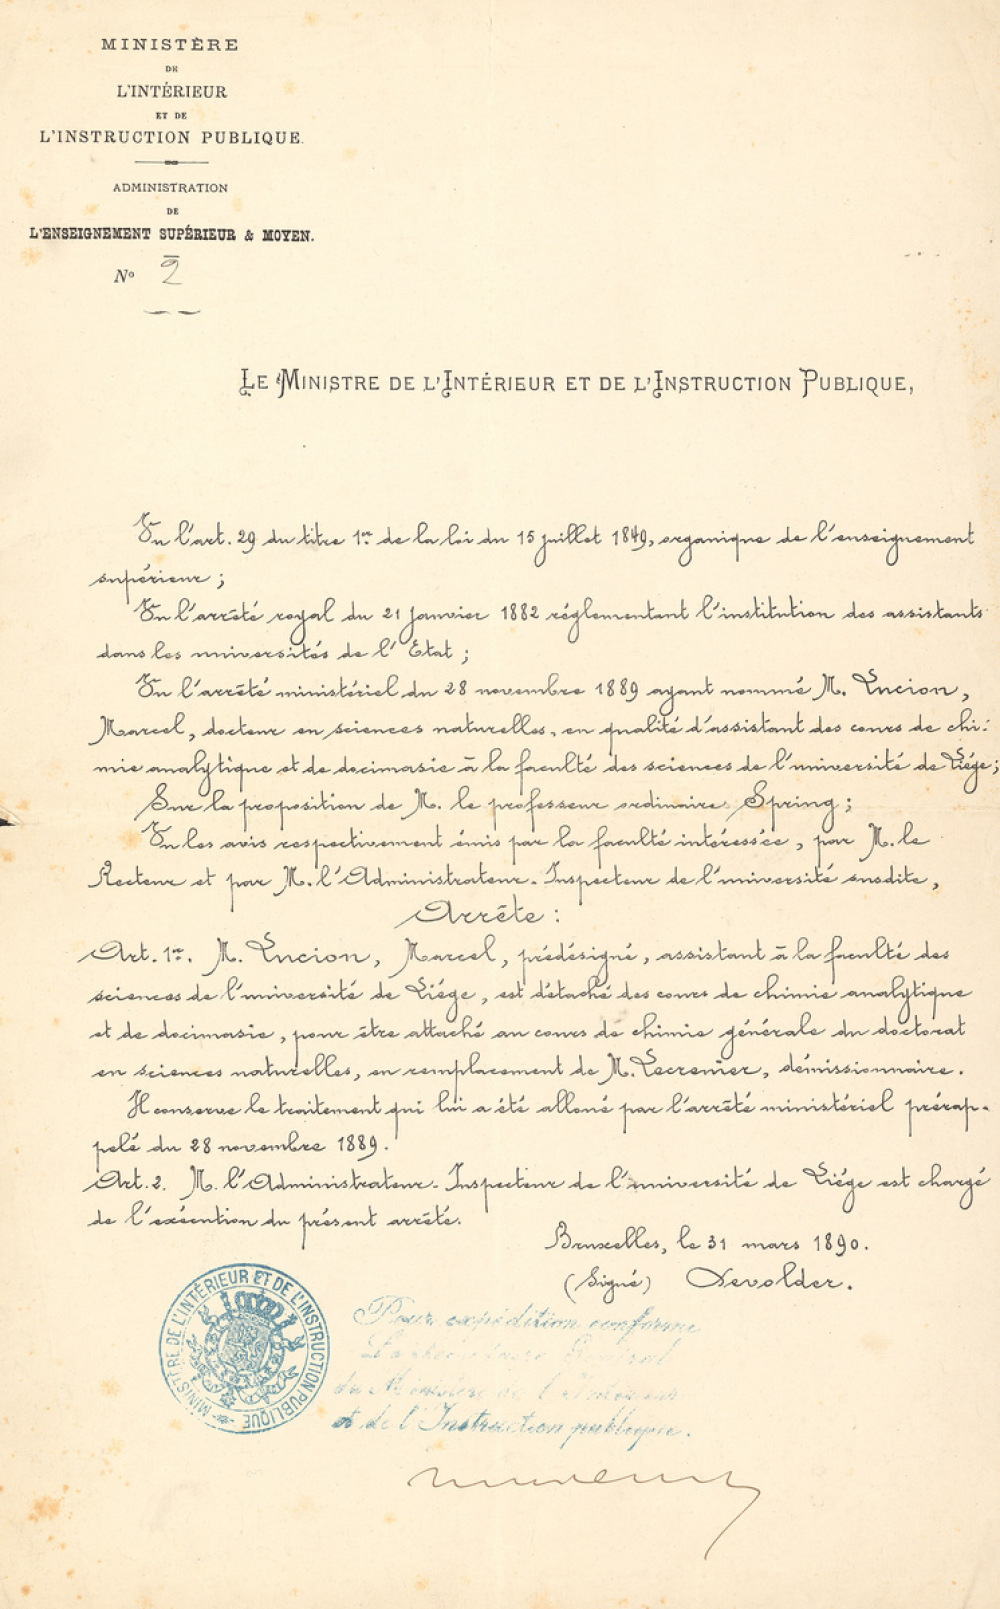 MINISTÈRE
DE
L'INTÉRIEUR
ET DE
L'INSTRUCTION PUBLIQUE.
ADMINISTRATION
DE
L'ENSEIGNEMENT SUPÉRIEUR & MOYEN.
No 2
LE MINISTRE DE L'INTÉRIEUR ET DE L'INSTRUCTION PUBLIQUE,
Vu l'art. 29 du titre 1er de la loi du 15 juillet 1849, organique de l'enseignement
supérieur ;
Vu l'arrêté royal du 21 Janvier 1882 réglementant l'institution des assistants
dans les universités de l'Etat ;
Vu l'arrêté ministériel du 28 novembre 1889 ayant nommé M. Lucion,
Marcel, docteur en sciences naturelles, en qualité d'assistant des cours de chi-
mie analytique et de docimasie à la faculté des sciences de l'université de Liége ;
Sur la proposition de M. le professeur ordinaire Spring ;
Vu les avis respectivement émis par la faculté intéressée, par M. le
Recteur et par M. l'Administrateur-Inspecteur de l'université susdite,
Arrête :
Art. 1er. M. Lucion, Marcel, prédésigné, assistant à la faculté des
sciences de l'université de Liége, est détaché des cours de chimie analytique
et de docimasie, pour être attaché au cours de chimie générale du doctorat
en sciences naturelles, en remplacement de M. Lecrenier, démissionnaire.
Il conserve le traitement qui lui a été alloué par l'arrêté ministériel prérap-
pelé du 28 novembre 1889.
Art. 2. M. l'Administrateur-Inspecteur de l'université de Liége est chargé
de l'exécution du présent arrêté.
Bruxelles, le 31 mars 1890.
(Signé) Devolder.
MINISTÈRE DE L'INTÉRIEUR ET DE L'INSTRUCTION PUBLIQUE
Pour expédition conforme
Le Secrétaire Général
du Ministère de l'Intérieur
et de l'Instruction publique.